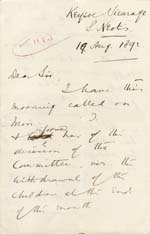 Keysoe Vicarage
S. Neots
19 Aug. 1892
Dear Sir
I have this
morning called on
Mrs. ?
& her of the
decision of the
Committee, viz. the
withdrawal of the
children at the end
of this month